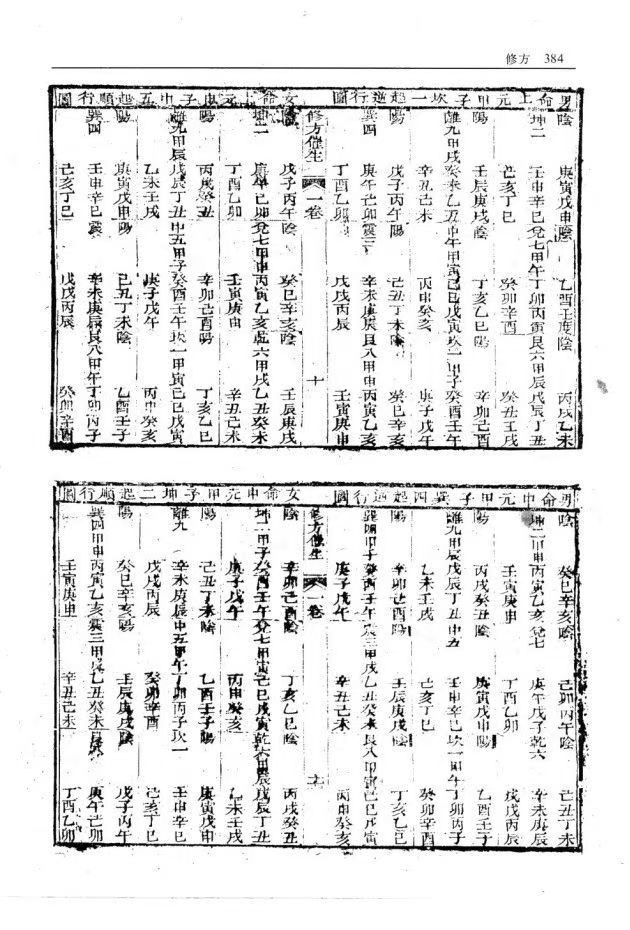 修方 384
男命上元甲子坎一起逆行圖
陰 庚寅戊申陰 乙酉壬 陰 丙戌
坤二 壬申辛巳兌七甲午丁卯丙寅 六甲辰戊辰丁丑
己亥丁巳 癸卯辛酉 癸丑壬戌
陽 壬辰庚戌陰 丁亥乙巳陽 辛卯己酉
離九甲戌癸未乙丑中 甲寅己巳戊寅坎一甲子癸酉壬午
辛丑己未 丙申癸亥 庚子戊午
陽 戊子丙午陽 己丑丁未陰 癸巳辛亥
巽四 庚午己卯震三 辛未庚辰艮八甲申丙寅乙亥
丁酉乙卯 戊戌丙辰 壬寅庚申
修方催生 一卷 十
女命上元甲子中五起順行圖
陰 戊子丙午陰 癸巳辛亥陰 壬辰庚戌
坤二 庚午己卯兌七甲申丙寅乙亥乾六甲戌乙丑癸未
丁酉乙卯 壬寅庚申 辛丑己未
陽 丙戌癸丑 辛卯己酉陽 丁亥乙巳
離九甲辰戊辰丁丑中五甲子癸酉壬午坎一甲寅己巳戊寅
乙未壬戌 庚子戊午 丙申癸亥
陽 庚寅戊申陽 己丑丁未陰 乙酉壬子
巽四 壬申辛巳震 辛未庚辰艮八甲午丁卯丙子
己亥丁巳 戊戌丙辰 癸卯辛酉
男命中元甲子巽四起逆行圖
陰 癸巳辛亥陰 己卯丙午陰 己丑丁未
坤二甲申丙寅乙亥兌七 庚午戊子乾六 辛未庚辰
壬寅庚申 丁酉乙卯 戊戌丙辰
陽 丙戌癸丑陰 庚寅戊申陽 乙酉壬子
離九甲辰戊辰丁丑中五 壬申辛巳坎一甲午丁卯丙子
乙未壬戌 己亥丁巳 癸卯辛酉
陽 辛卯己酉陽 壬辰庚戌陰 丁亥乙巳
巽四甲子癸酉壬午震三甲戌乙丑癸未艮八甲寅己巳戊寅
庚子戊午 辛丑己未 丙申癸亥
修方催生 一卷
女命中元甲子坤二起順行圖
陰 辛卯己酉陰 丁亥乙巳陰 丙戌癸丑
坤二甲子癸酉壬午兌七甲寅己巳戊寅乾六甲辰戊辰丁丑
庚子戊午 丙申癸亥 乙未壬戌
陽 己丑丁未陰 乙酉壬子陽 庚寅戊申
離九 辛未庚辰中五甲午丁卯丙子坎一 壬申辛巳
戊戌丙辰 癸卯辛酉 己亥丁巳
陽 癸巳辛亥陽 壬辰庚戌陰 戊子丙午
巽四甲申丙寅乙亥震三甲戌乙丑癸未艮八 庚午己卯
壬寅庚申 辛丑己未 丁酉乙卯